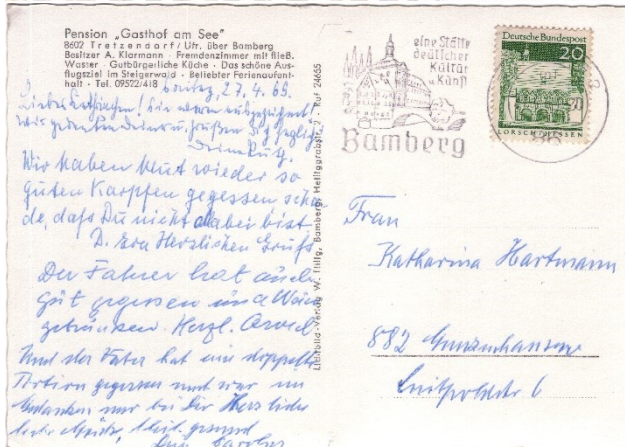 Pension „Gasthof am See"
8602 Tretzendorf/Ufr. über Bamberg
Besitzer A. Klarmann · Fremdenzimmer mit fließ.
Wasser · Gutbürgerliche Küche · Das schöne Aus-
flugsziel im Steigerwald · Beliebter Ferienaufent-
halt · Tel. 09522/418
27.4.69.
Wir haben heut wieder so
guten Karpfen gegessen scha-
de, daß Du nicht dabei bist.
D. Eva Herzlichen Gruß
Der Fahrer hat auch
gut gegessen und Wein
getrunken. Herzl.
Und der Vater hat eine doppelte
Portion gegessen und war in
Gedanken nur bei Dir
Lichtbild-Verlag W. Hillg, Bamberg, Heiliggrabstr. 2 · Ruf 24655
eine Stätte
deutscher
Kultur
u. Kunst
Bamberg
Deutsche Bundespost
20
LORSCH/HESSEN
86
Frau
Katharina Hartmann
882 Gunzenhausen
Luitpoldstr 6